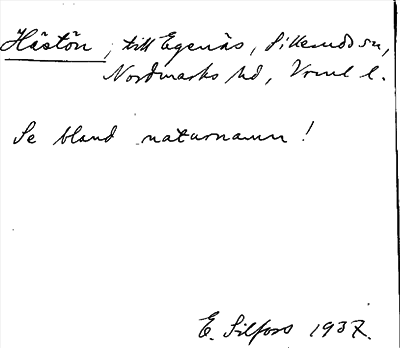 Hästön, till Egenäs, Silleruds sn,
Nordmarks hd, Vrml l.
Se bland naturnamn!
E. Silfors 1937.